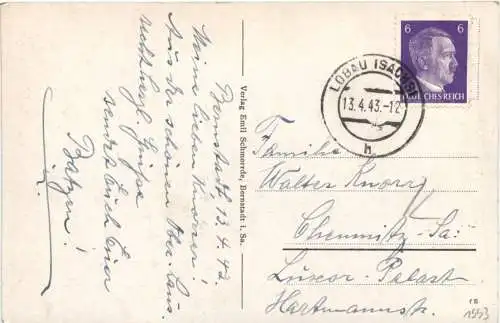 Bernstadt 13.4.43.
Meine lieben Knorrs!
Aus der schönen Ober-Laus.
recht herzl. Grüße
sendet Euch Euer
Verlag Emil Schmorrde, Bernstadt i. Sa.
6 6
DEUTSCHES REICH
LÖBAU (SACHS)
13.4.43.-12
h
Familie
Walter Knorr
Chemnitz-Sa:
Luxor-Palast
Hartmannstr.
1943